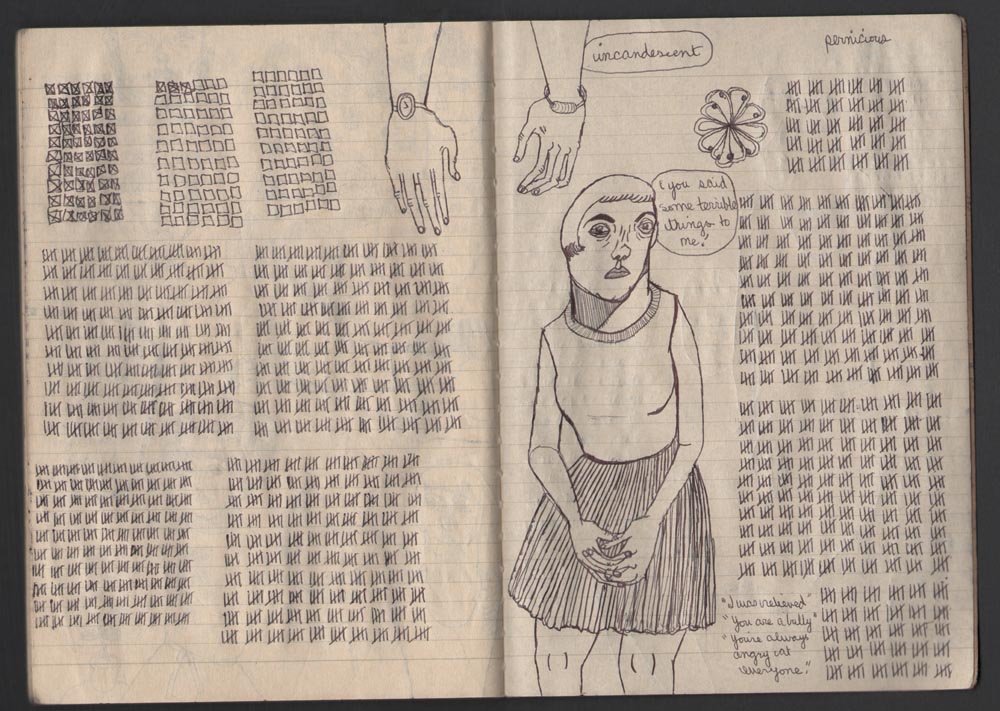 incandescent
pernicious
you said
some terrible
things to
me.
"I was relieved"
"You are a bully"
"You're always
angry at
everyone."